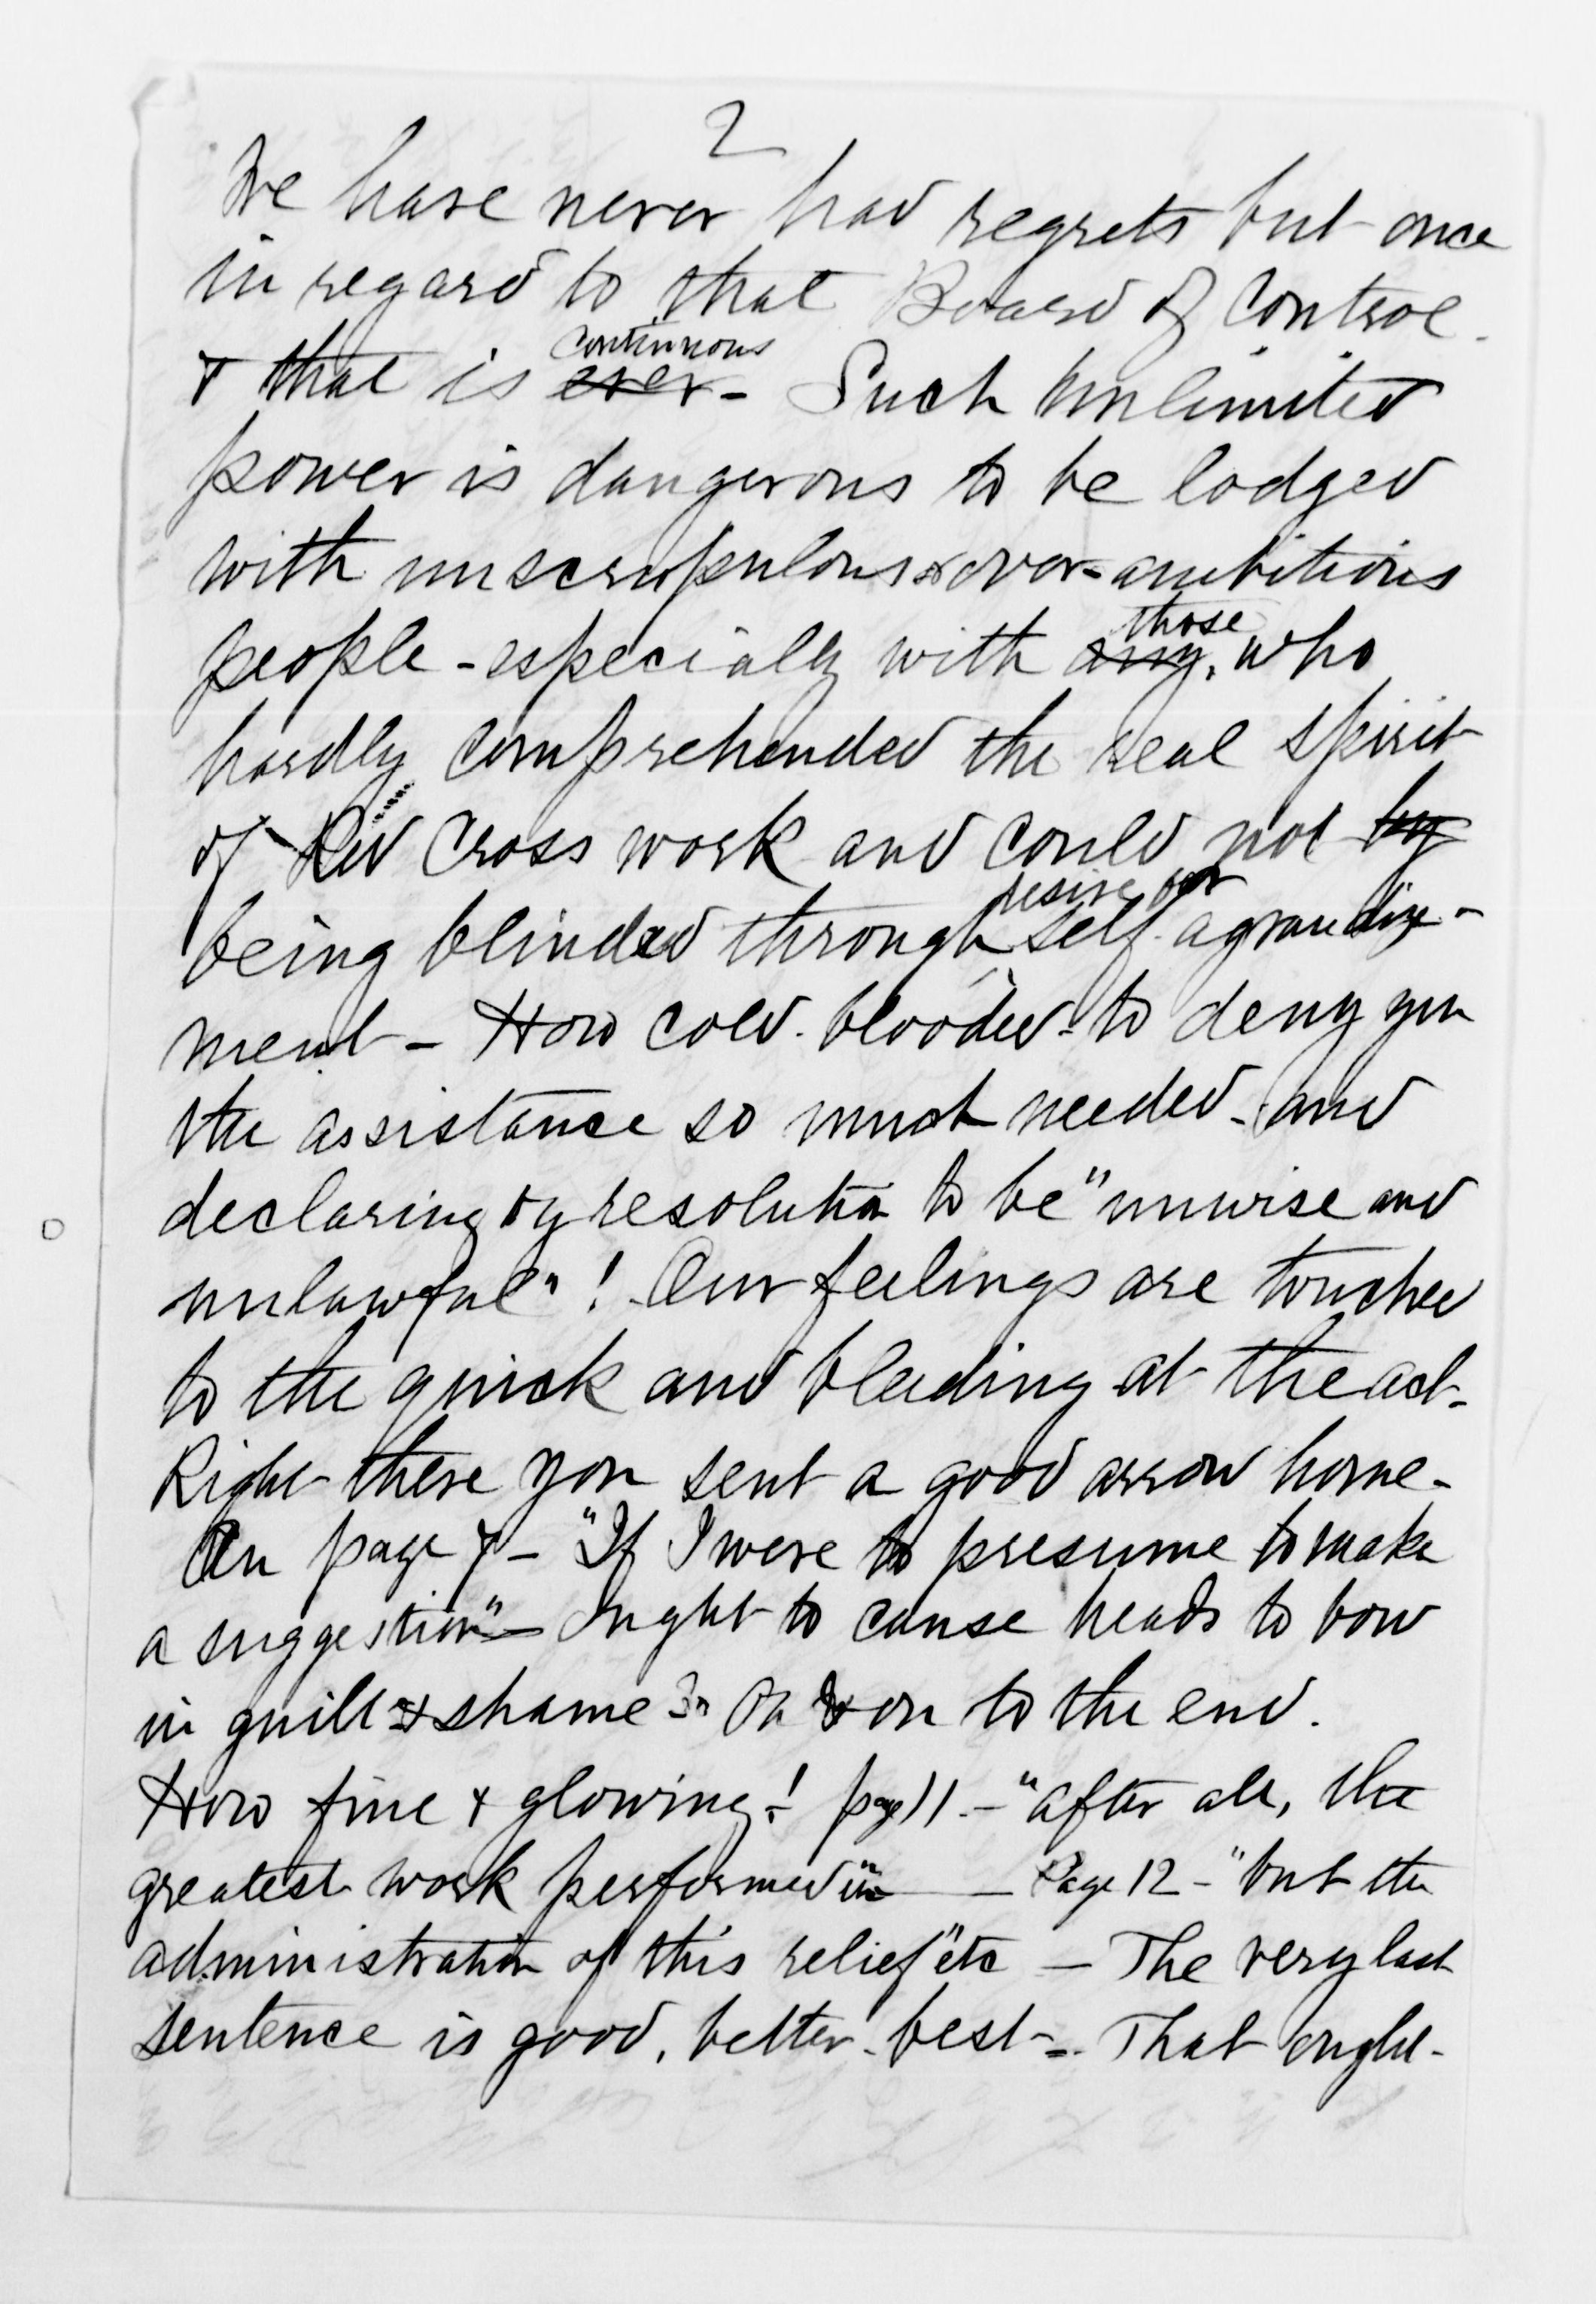 2
We have never had regrets but once
in regard to that Board of Control.
continuous
& that is ever - Such unlimited
power is dangerous to be lodged
with unscrupulous & over-ambitious
those
people - especially with any, who
hardly comprehended the real spirit
of Red Cross work and could not by
desire for
being blinded through self-agrandize-
ment - How cold-blooded - to deny you
the assistance so much needed - and
declaring by resolution to be "unwise and
unlawful"! Our feelings are touched
to the quick and bleeding at the act.
Right there you sent a good arrow home -
On page 7 - "If I were to presume to make
a suggestion" - Ought to cause heads to bow
in guilt & shame On & on to the end.
How fine & glowing! page 11 - "after all, the
greatest work performed" - Page 12 - "but the
administration of this relief" etc - The very last
sentence is good, better - best - That ought -